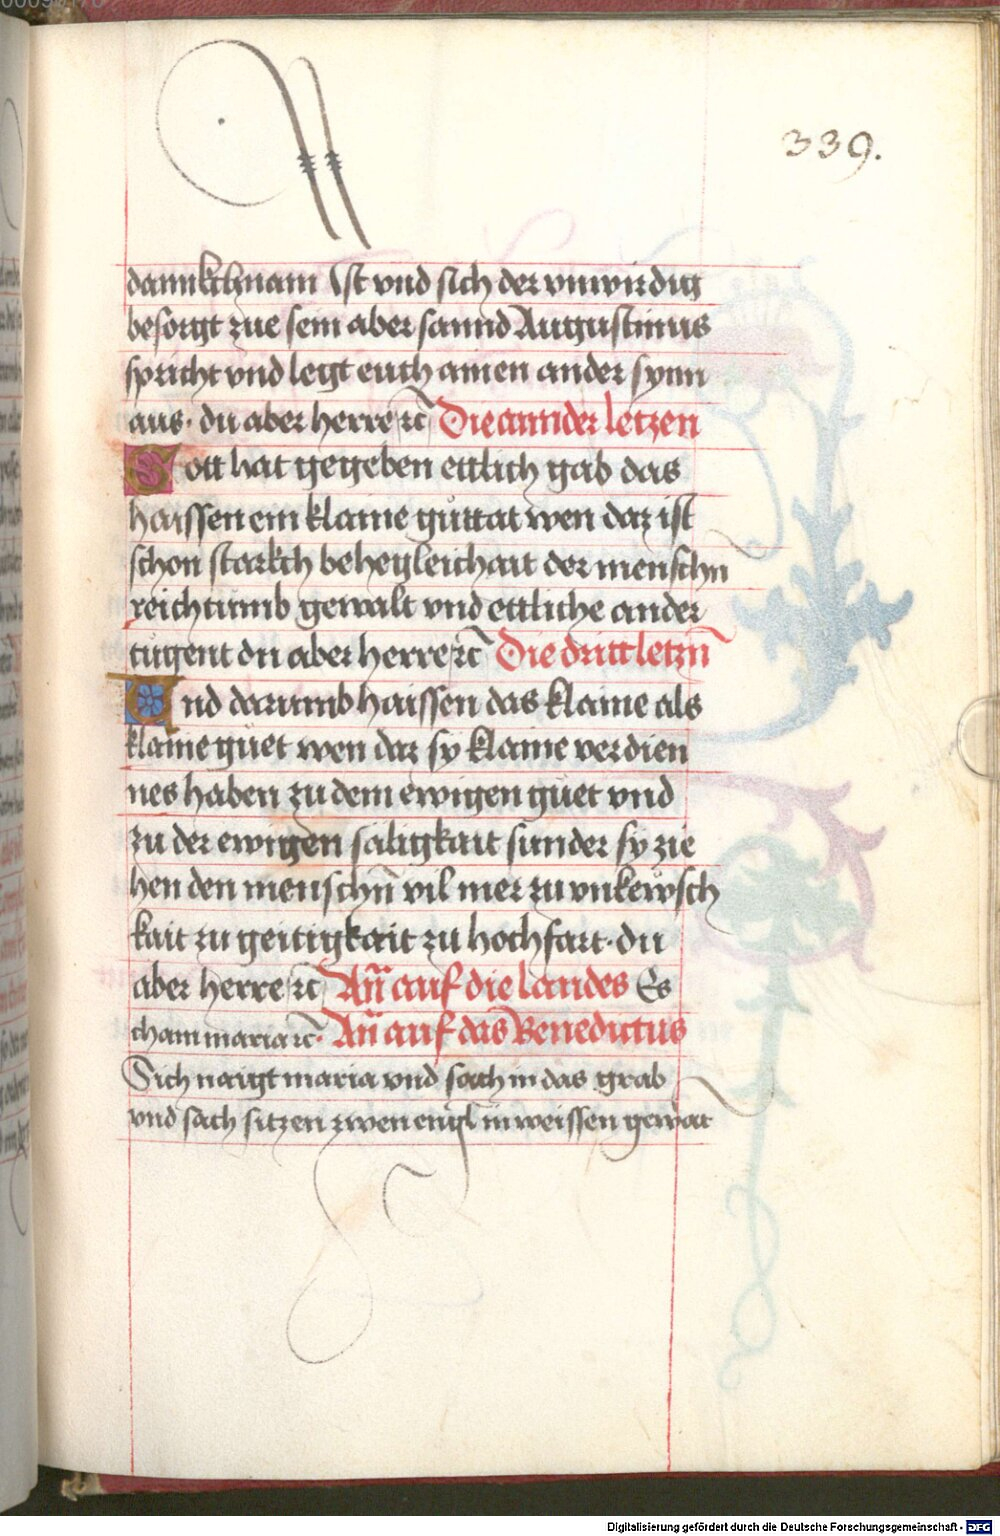 339.
dannkchnam Ist vnd sich der vnwirdig
besorgt zue sein aber sannd Augustinus
spricht vnd legt euch ainen ander synn
aus· du aber herre ꝛc̄ Die annder letzen
Gott hat gegeben ettlich gab das
haissen ein klaine gůttat wen daz ist
schon starkch behegleichait der menschn
reichtumb gewalt vnd ettliche ander
tůgent du aber herre ꝛc̄ Die dritt letzn̄
Vnd darumb haissen das klaine als
klaine gůet wen daz sy klaine verdien
nes haben zu dem ewigen gůet vnd
zu der ewigen säligkait sunder sy zie
hen den menschn̄ vil mer zu vnkewsch
kait zu geitigkait zu hochfart· du
aber herre ꝛc̄ An̄ auf die landes Es
cham maria ꝛc̄· An̄ auf das Benedictus
Sich naigt maria vnd sach in das grab
vnd sach sitzen zwen engl in weissen gewat
Digitalisierung gefördert durch die Deutsche Forschungsgemeinschaft - DFG